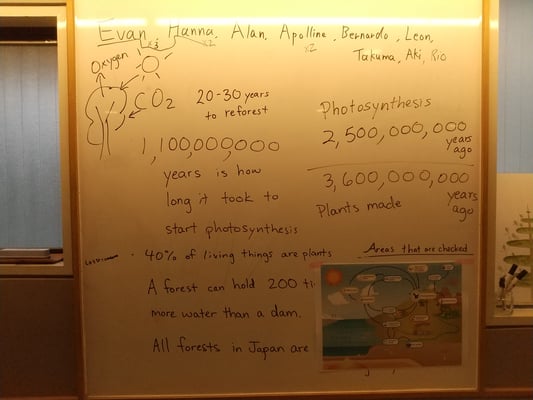 Evan, Hanna, Alan, Apolline, Bernardo, Leon,
x3 x2 x2
Takuma, Aki, Rio
Oxygen
CO2
20-30 years
to reforest
1,100,000,000
years is how
long it took to
start photosynthesis
Photosynthesis
2,500,000,000
years
ago
3,600,000,000
years
ago
Plants made
· 40% of living things are plants
Areas that are checked
A forest can hold 200 ti
more water than a dam.
All forests in Japan are